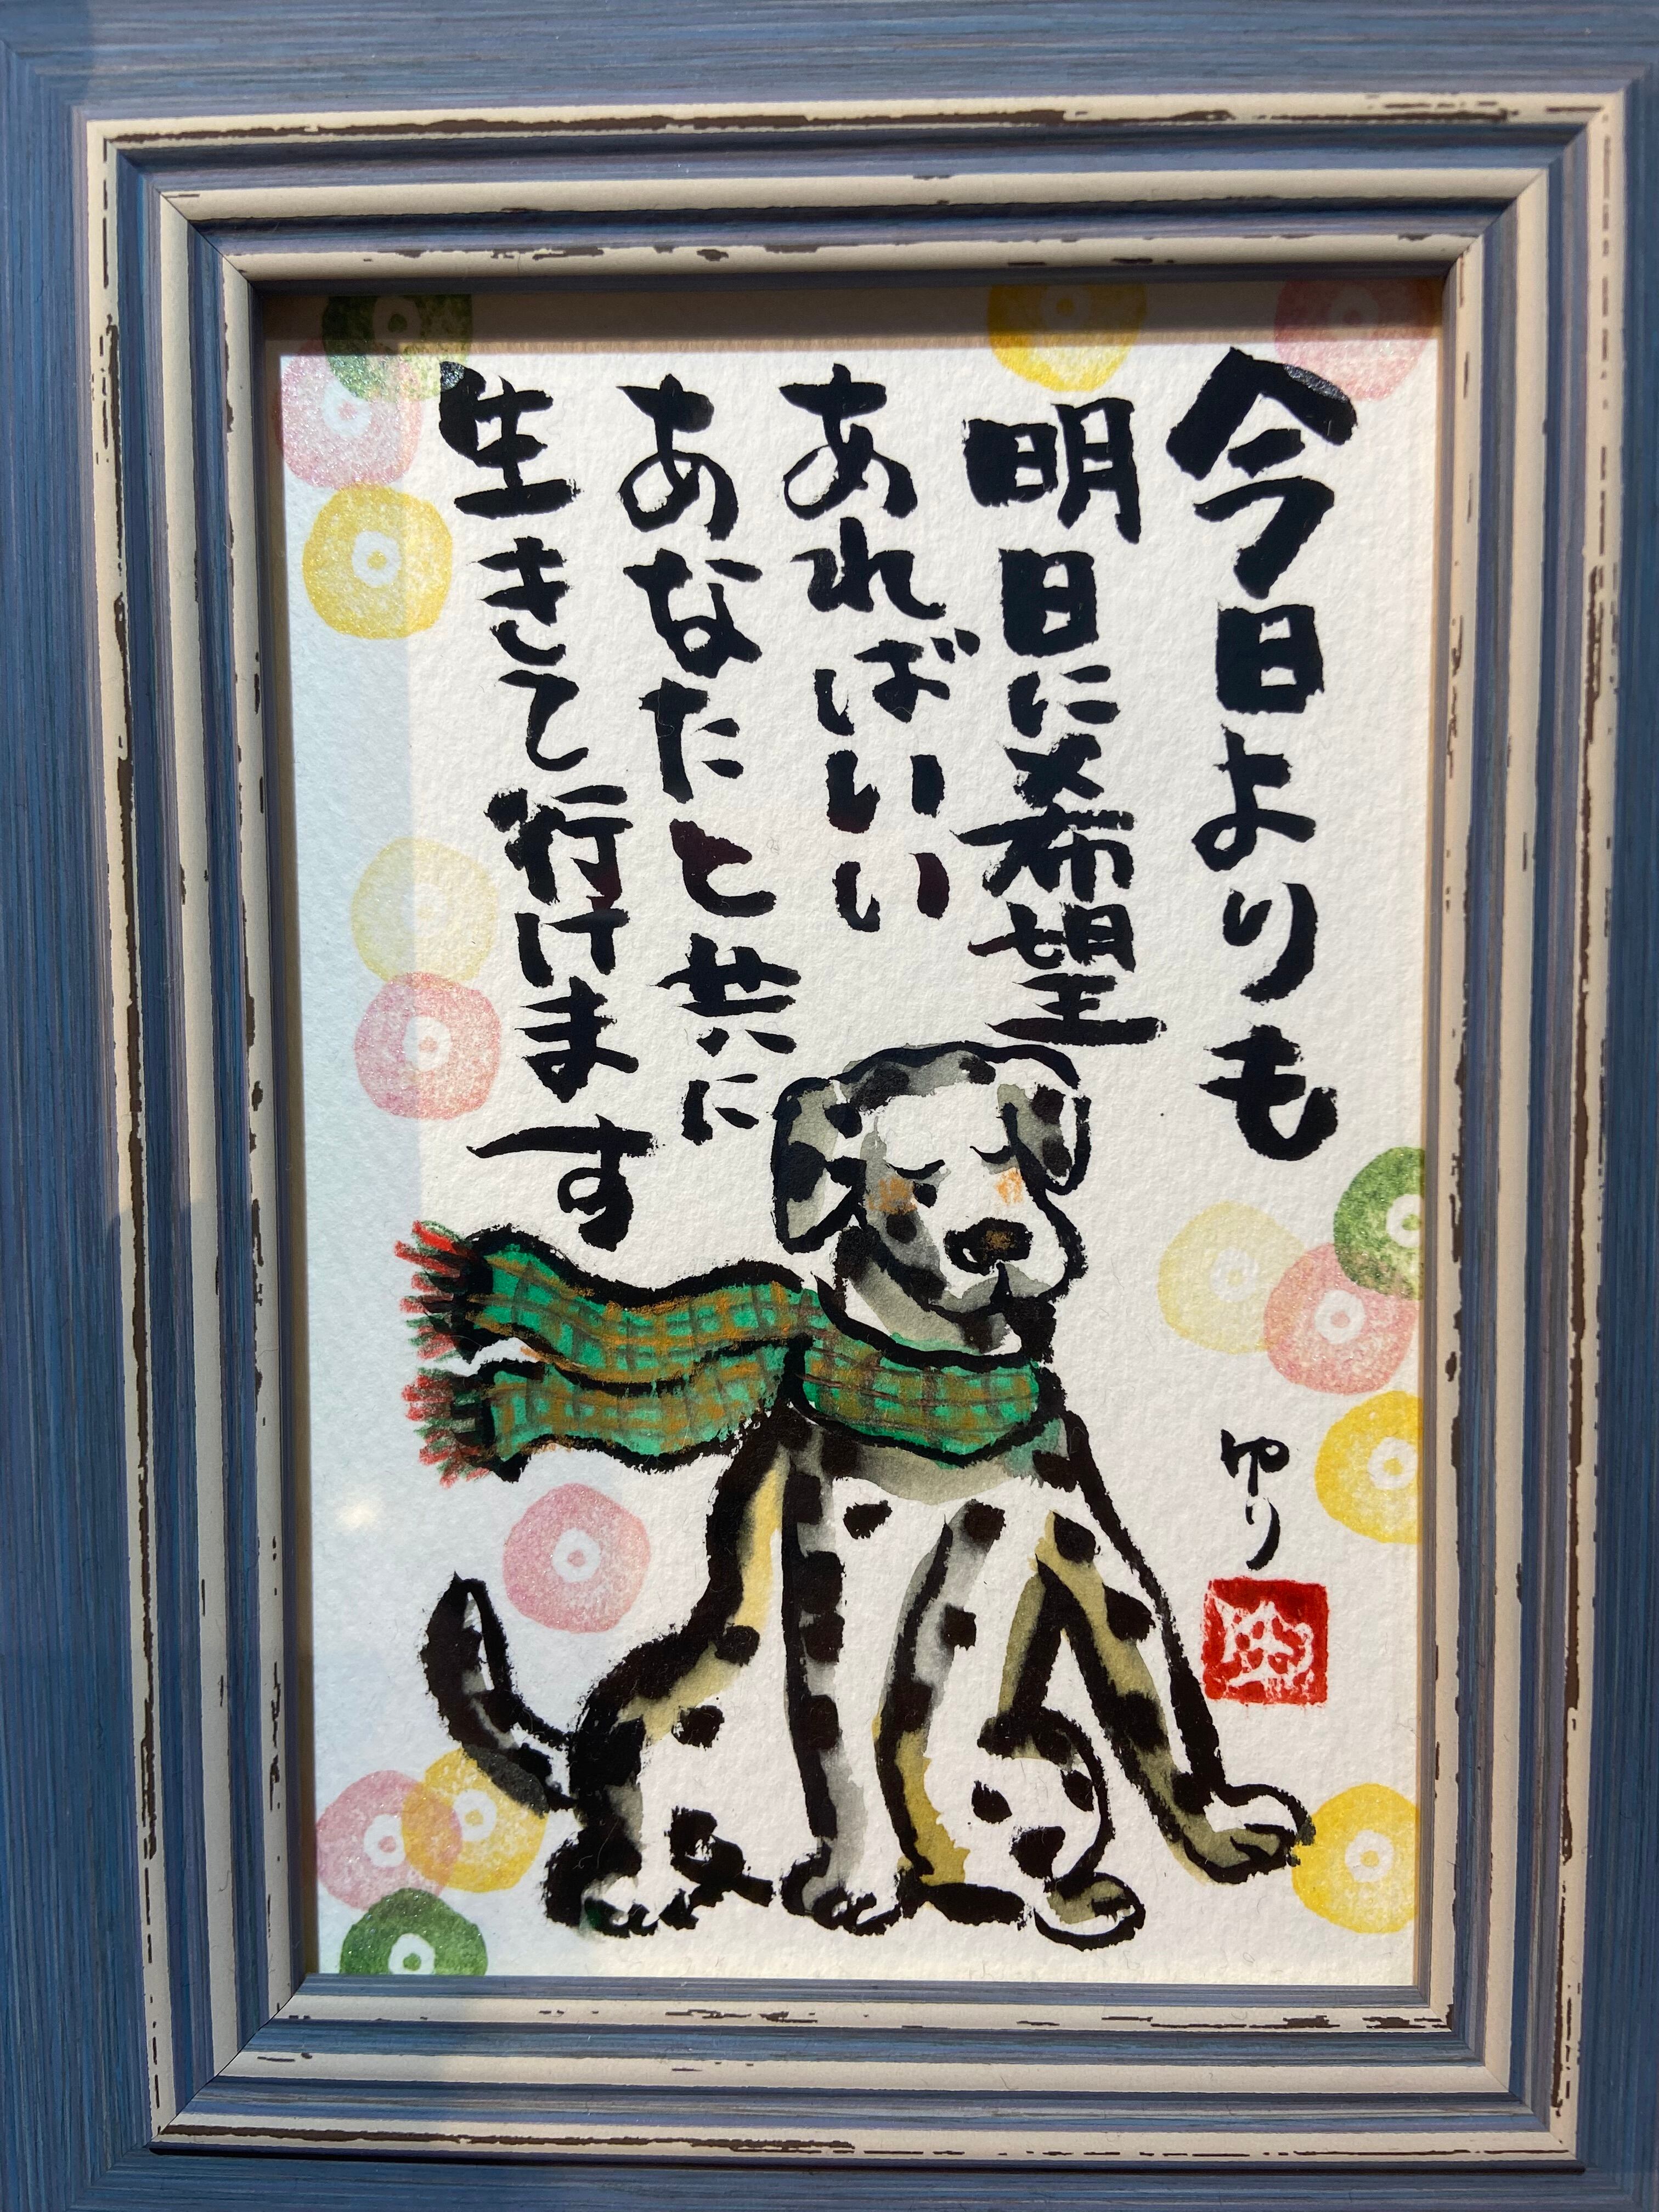 今日よりも
明日に希望
あればいい
あなたと共に
生きて行けます
ゆり